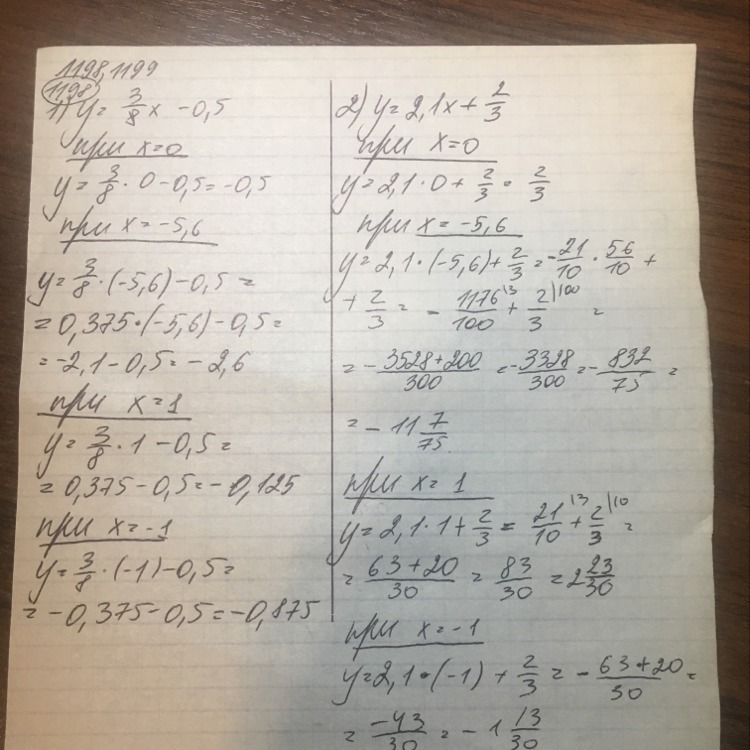 1198, 1199
1198
1) y = 3/8 x - 0,5
при x=0
y = 3/8 · 0 - 0,5 = -0,5
при x = -5,6
y = 3/8 · (-5,6) - 0,5 =
= 0,375 · (-5,6) - 0,5 =
= -2,1 - 0,5 = -2,6
при x = 1
y = 3/8 · 1 - 0,5 =
= 0,375 - 0,5 = -0,125
при x = -1
y = 3/8 · (-1) - 0,5 =
= -0,375 - 0,5 = -0,875
2) y = 2,1x + 2/3
при x=0
y = 2,1 · 0 + 2/3 = 2/3
при x = -5,6
y = 2,1 · (-5,6) + 2/3 = -21/10 · 56/10 +
+ 2/3 = - 1176/100 |3 + 2/3 |100 =
= - 3528+200/300 = - 3328/300 = - 832/75 =
= - 11 7/75
при x = 1
y = 2,1 · 1 + 2/3 = 21/10 |3 + 2/3 |10 =
= 63+20/30 = 83/30 = 2 23/30
при x = -1
y = 2,1 · (-1) + 2/3 = - 63+20/30 =
= -43/30 = - 1 13/30